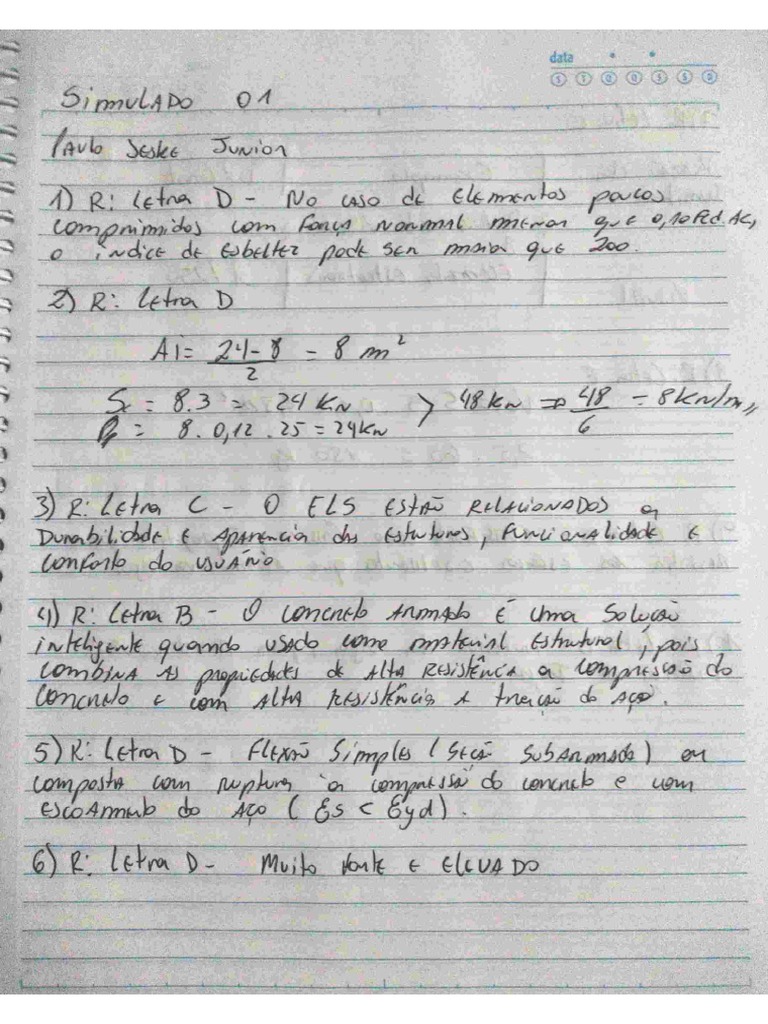 data
S T Q Q S S D
SIMULADO 01
PAULO JESKE JUNIOR
1) R: LETRA D - NO CASO DE ELEMENTOS POUCOS
COMPRIMIDOS COM FORÇA NORMAL MENOR QUE 0,10 Fcd.Ac,
O ÍNDICE DE ESBELTEZ PODE SER MAIOR QUE 200.
2) R: LETRA D
Ai = 24-8 / 2 = 8 m²
= 8.3 = 24 KN > 48 KN => 48/6 = 8KN/m,,
= 8.0,12.25 = 24KN
3) R: LETRA C - O ELS ESTÃO RELACIONADOS a
DURABILIDADE E APARENCIA das ESTRUTURAS, FUNCIONALIDADE E
CONFORTO DO USUÁRIO
4) R: LETRA B - O CONCRETO ARMADO É UMA SOLUÇÃO
INTELIGENTE QUANDO USADO COMO MATERIAL ESTRUTURAL, POIS
COMBINA AS PROPRIEDADES DE ALTA RESISTÊNCIA A COMPRESSÃO DO
CONCRETO E COM ALTA RESISTÊNCIA A TRAÇÃO DO AÇO.
5) R: LETRA D - FLEXÃO SIMPLES (SEÇÃO SUBARMADA) OU
COMPOSTA COM RUPTURA à COMPRESSÃO DO CONCRETO E COM
ESCOAMENTO DO AÇO (Es < Eyd).
6) R: LETRA D - MUITO FORTE E ELEVADO